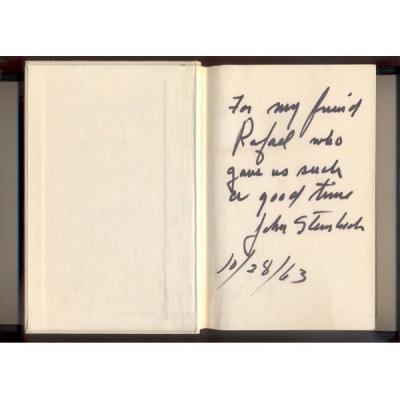 For my friend
Rafael who
gave us such
a good time
John Steinbeck
10/28/63